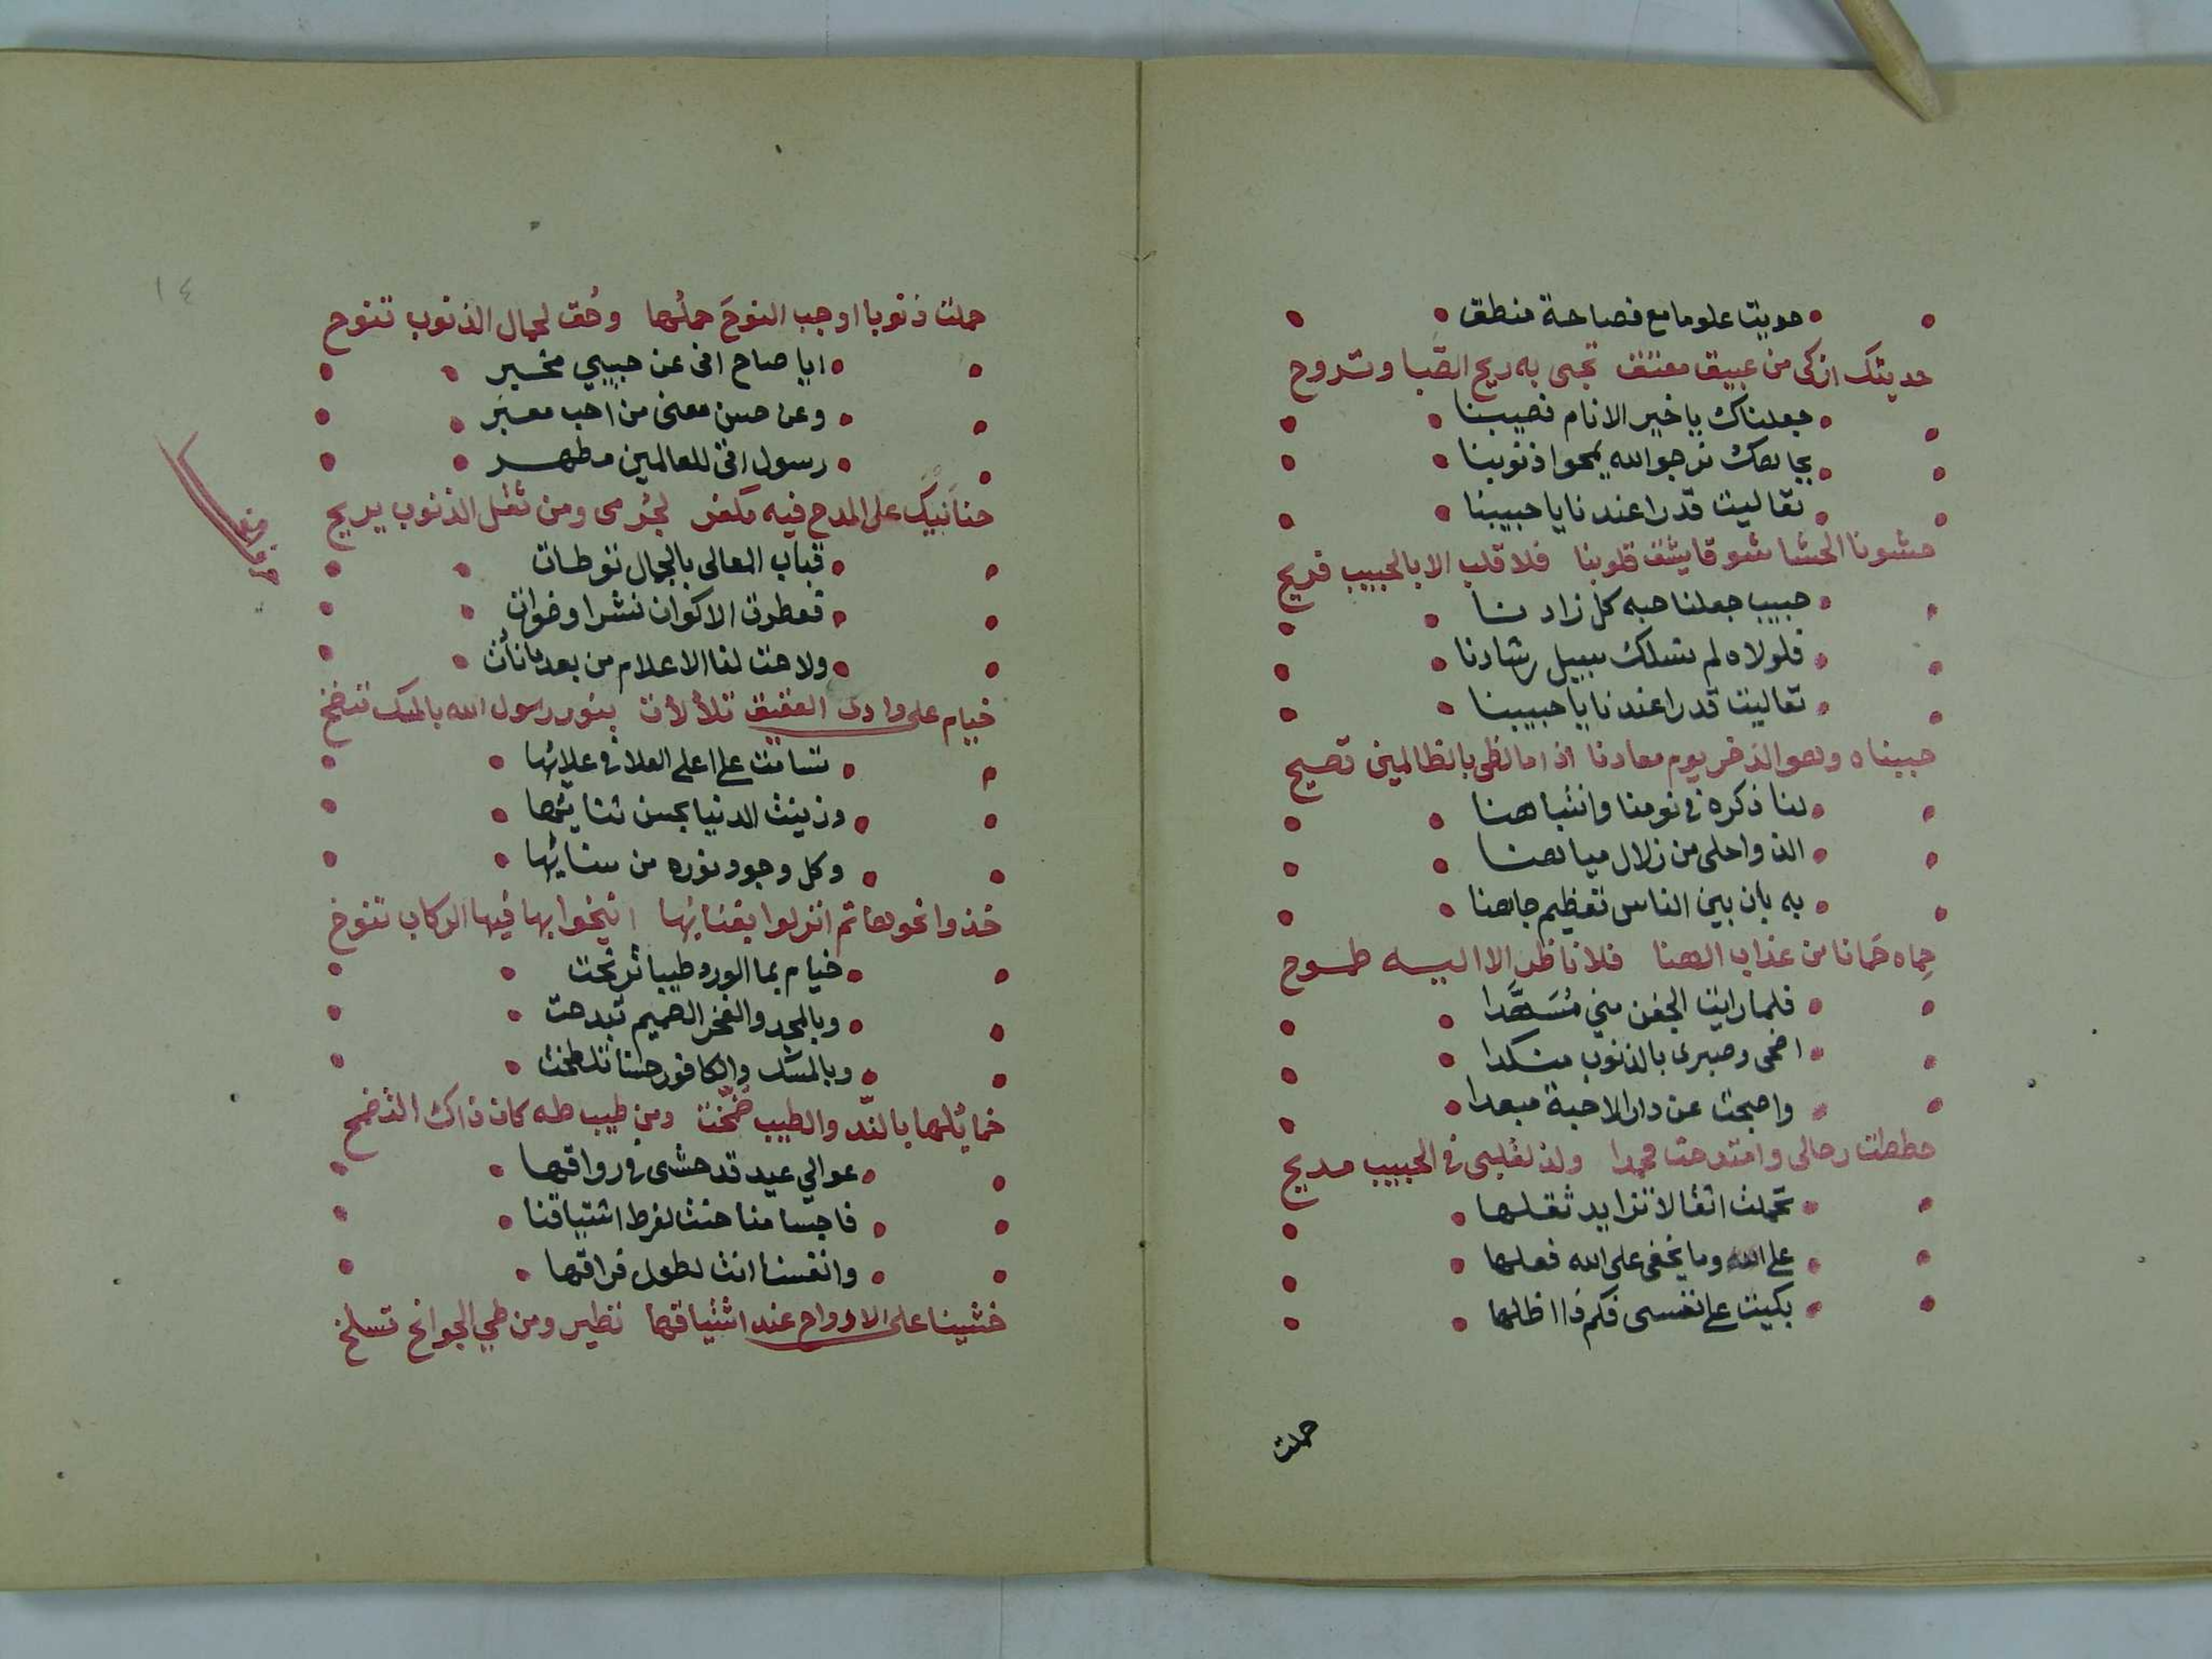 حويت علوما مع فصاحة منطق
حديثك ازكى من عبيق معتق تجى به ريح الصَّبا وتروح
جعلناك يا خير الانام نصيبنا
بجاهك نرجوا الله يمحوا ذنوبنا
تعاليت قدرا عندنا يا حبيبنا
حشونا الحشا شوقا يشق قلوبنا فلا قلب الا بالحبيب قريح
حبيب جعلنا حبه كل زادنا
فلولاه لم نسلك سبيل رشادنا
تعاليت قدرا عندنا يا حبيبنا
حبيناه وهو الذخر يوم معادنا اذا ما لظى بالظالمين تصيح
لنا ذكره في نومنا وانتباهنا
الذ واحلى من زلال مياهنا
به بان بين الناس تعظيم جاهنا
حِماه حَمانا من عذاب الهنا فلا ناظر الا اليه طموح
فلما رايت الجفن مني مُسَهَّدا
اضحى وصبرى بالذنوب منكدا
واصبحت عن دار الاحبة مبعدا
حططت رحالى وامتدحت محمدا ولذ لقلبى في الحبيب مديح
تحملت اثقالا تزايد ثقلها
على الله وما يخفى على الله فعلها
بكيت على نفسى فكم ذا اظلها
حملت
١٤
حملت ذنوبا اوجب النوحَ حملُها وحُق لحمال الذنوب تنوح
ايا صاح انى عن حبيبي مخبر
وعن حسن معنى من احب معبر
رسول اتى للعالمين مطهر
حنانَيكَ على المدح فيه مكفر لجُرمى ومن ثقل الذنوب يريح
قباب المعالى بالجمال توطات
فعطرت الاكوان نشرا وضوات
ولاحت لنا الاعلام من بعد ما نأت
خيام على وادى العقيق تلألأت بنور رسول الله بالمسك تنضخ
تسامت على اعلى العلا في علائها
وزينت الدنيا بحسن ثنائها
وكل وجود نوره من سنائها
خذوا نحوها ثم انزلوا بفنائها انيخوا بها فيها الركاب تنوخ
خيام بما الورد طيبا ترنحت
وبالمجد والفخر الصميم تبدحت
وبالمسك والكافور حسنا تلطخت
خمائلها بالنّد والطيب ضُمّخت ومن طيب طه كان ذاك التضمخ
عوالي عبيد قد حشى في رواقها
فاجسامنا حنت لفرط اشتياقنا
وانفسنا انت لطول فراقها
خشينا على الارواح عند اشتياقها تطير ومن طي الجوانح تسلخ